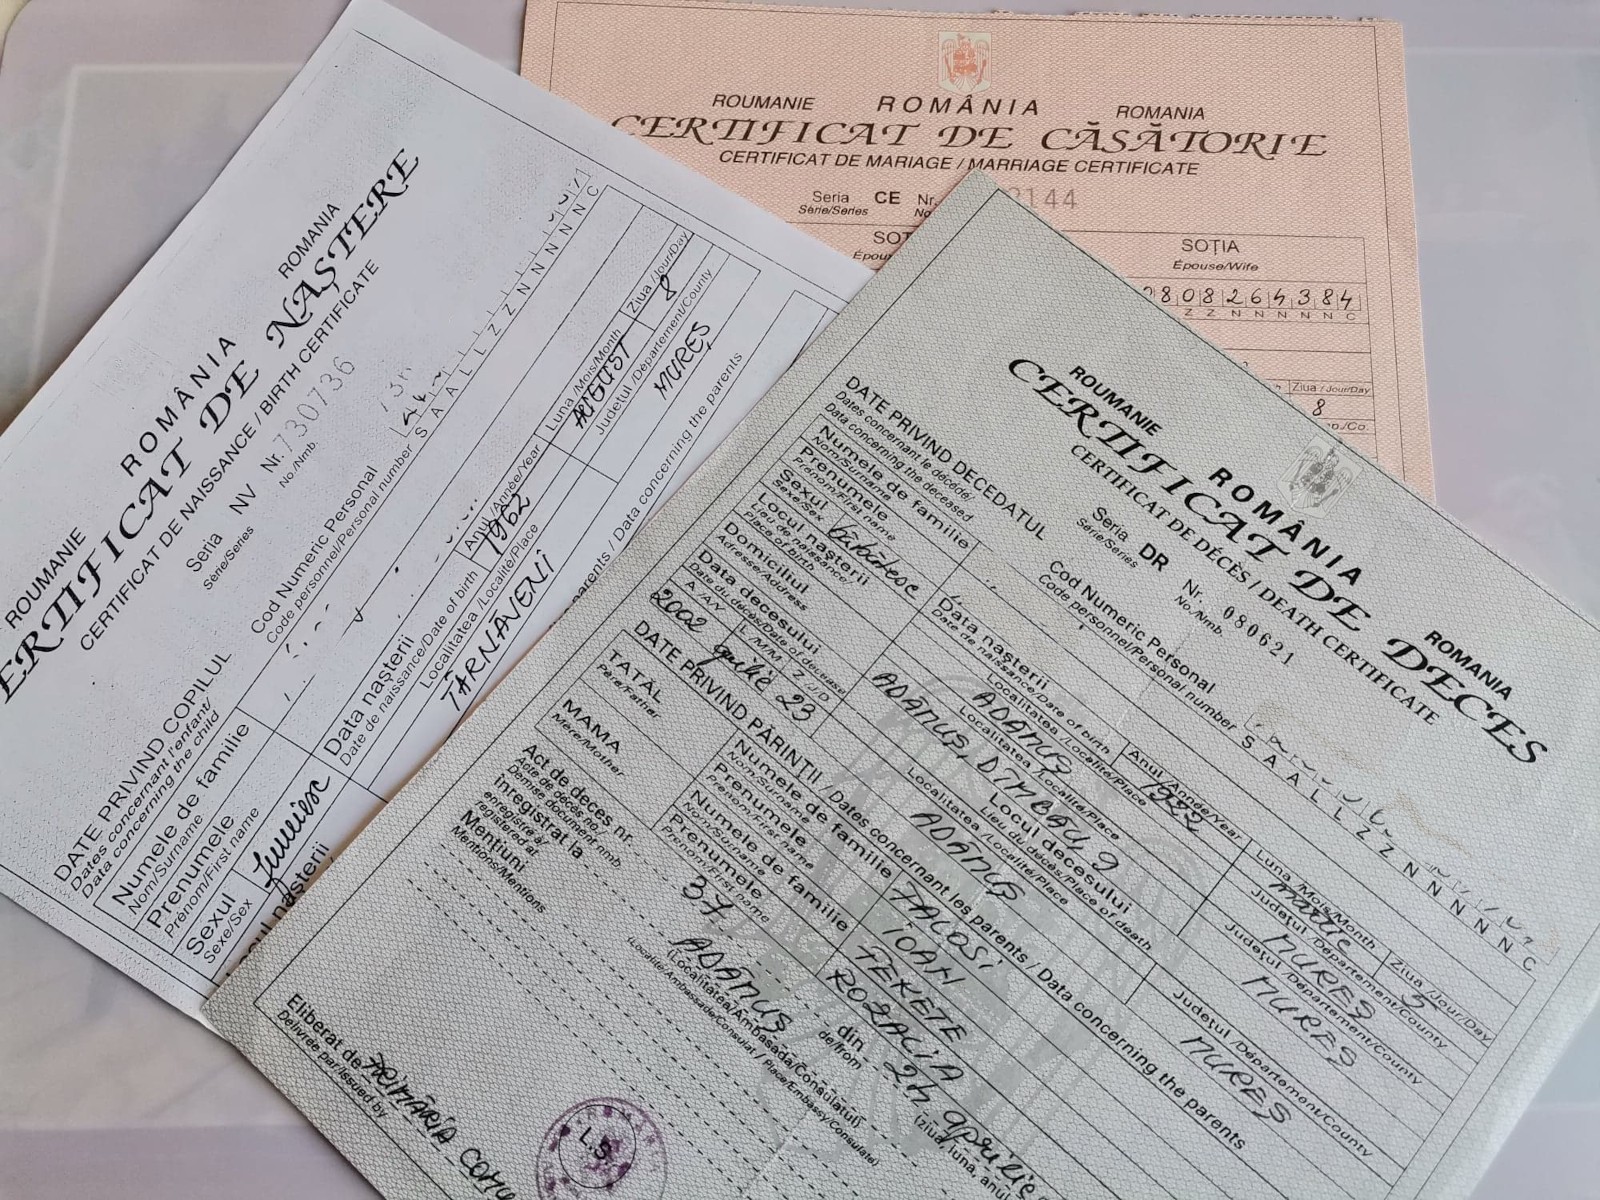 ROUMANIE ROMÂNIA ROMANIA
CERTIFICAT DE CĂSĂTORIE
CERTIFICAT DE MARIAGE / MARRIAGE CERTIFICATE
Seria CE Nr.
Série/Series
SOȚIA
Épouse/Wife
Z Z N N N N N C
Ziua / Jour/Day
8
ROUMANIE ROMÂNIA ROMANIA
CERTIFICAT DE NAȘTERE
CERTIFICAT DE NAISSANCE / BIRTH CERTIFICATE
Seria NIV Nr. 730736
Série/Series No./Nmb.
Cod Numeric Personal
Code personnel/Personal number S A A L L Z Z N N N N N C
DATE PRIVIND COPILUL
Dates concernant l'enfant/
Data concerning the child
Numele de familie
Nom/Surname
Prenumele
Prénom/First name
Sexul
Sexe/Sex
Data nașterii
Date de naissance/Date of birth
Anul /Année/Year
1962
Luna /Mois/Month
AUGUST
Ziua /Jour/Day
8
Localitatea /Localité/Place
TÂRNĂVENI
Județul /Département/County
MUREȘ
parents / Data concerning the parents
ROUMANIE ROMÂNIA ROMANIA
CERTIFICAT DE DECES
CERTIFICAT DE DÉCÈS / DEATH CERTIFICATE
Seria DR Nr. 080621
Série/Series No./Nmb.
Cod Numeric Personal
Code personnel/Personal number S A A L L Z Z N N N N N C
DATE PRIVIND DECEDATUL
Dates concernant le décédé/
Data concerning the deceased
Numele de familie
Nom/Surname
Prenumele
Prénom/First name
Sexul bărbătesc
Sexe/Sex
Data nașterii
Date de naissance/Date of birth
Anul /Année/Year
1922
Luna /Mois/Month
martie
Ziua /Jour/Day
5
Locul nașterii
Lieu de naissance/
Place of birth
ADAMUS
Localitatea /Localité/Place
MURES
Județul /Département/County
Domiciliul
Adresse/Address
ADAMUS, DÎMBĂU, 9
Localitatea /Localité/Place
MURES
Județul /Département/County
Data decesului
Date du décès/Date of decease
A /A/Y L /M/M Z /J/D
2002 aprilie 23
Locul decesului
Lieu du décès/Place of death
ADAMUS
Localitatea /Localité/Place
MURES
Județul /Département/County
DATE PRIVIND PĂRINȚII / Dates concernant les parents / Data concerning the parents
TATĂL
Père/Father
Numele de familie
Nom/Surname
TACOSI
Prenumele
Prénom/First name
IOAN
MAMA
Mère/Mother
Numele de familie
Nom/Surname
FEKETE
Prenumele
Prénom/First name
ROZALIA
Act de deces nr.
Acte de décès no./
Demise document nmb.
37 din 24 aprilie
de/from
înregistrat la
enregistré à/
registered at
ADAMUS
(Localitatea/Ambasada/Consulatul)
(Localité/Ambassade/Consulat / Place/Embassy/Consulate)
Mențiuni
Mentions/Mentions
Eliberat de PRIMĂRIA
Délivrée par/Issued by
L.S.